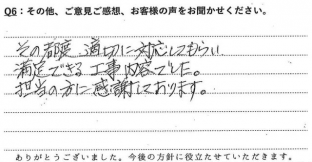 Q6：その他、ご意見ご感想、お客様の声をお聞かせください。
その都度 適切に対応してもらい
満足できる工事内容でした。
担当の方に感謝しております。
ありがとうございました。今後の方針に役立たせていただきます。